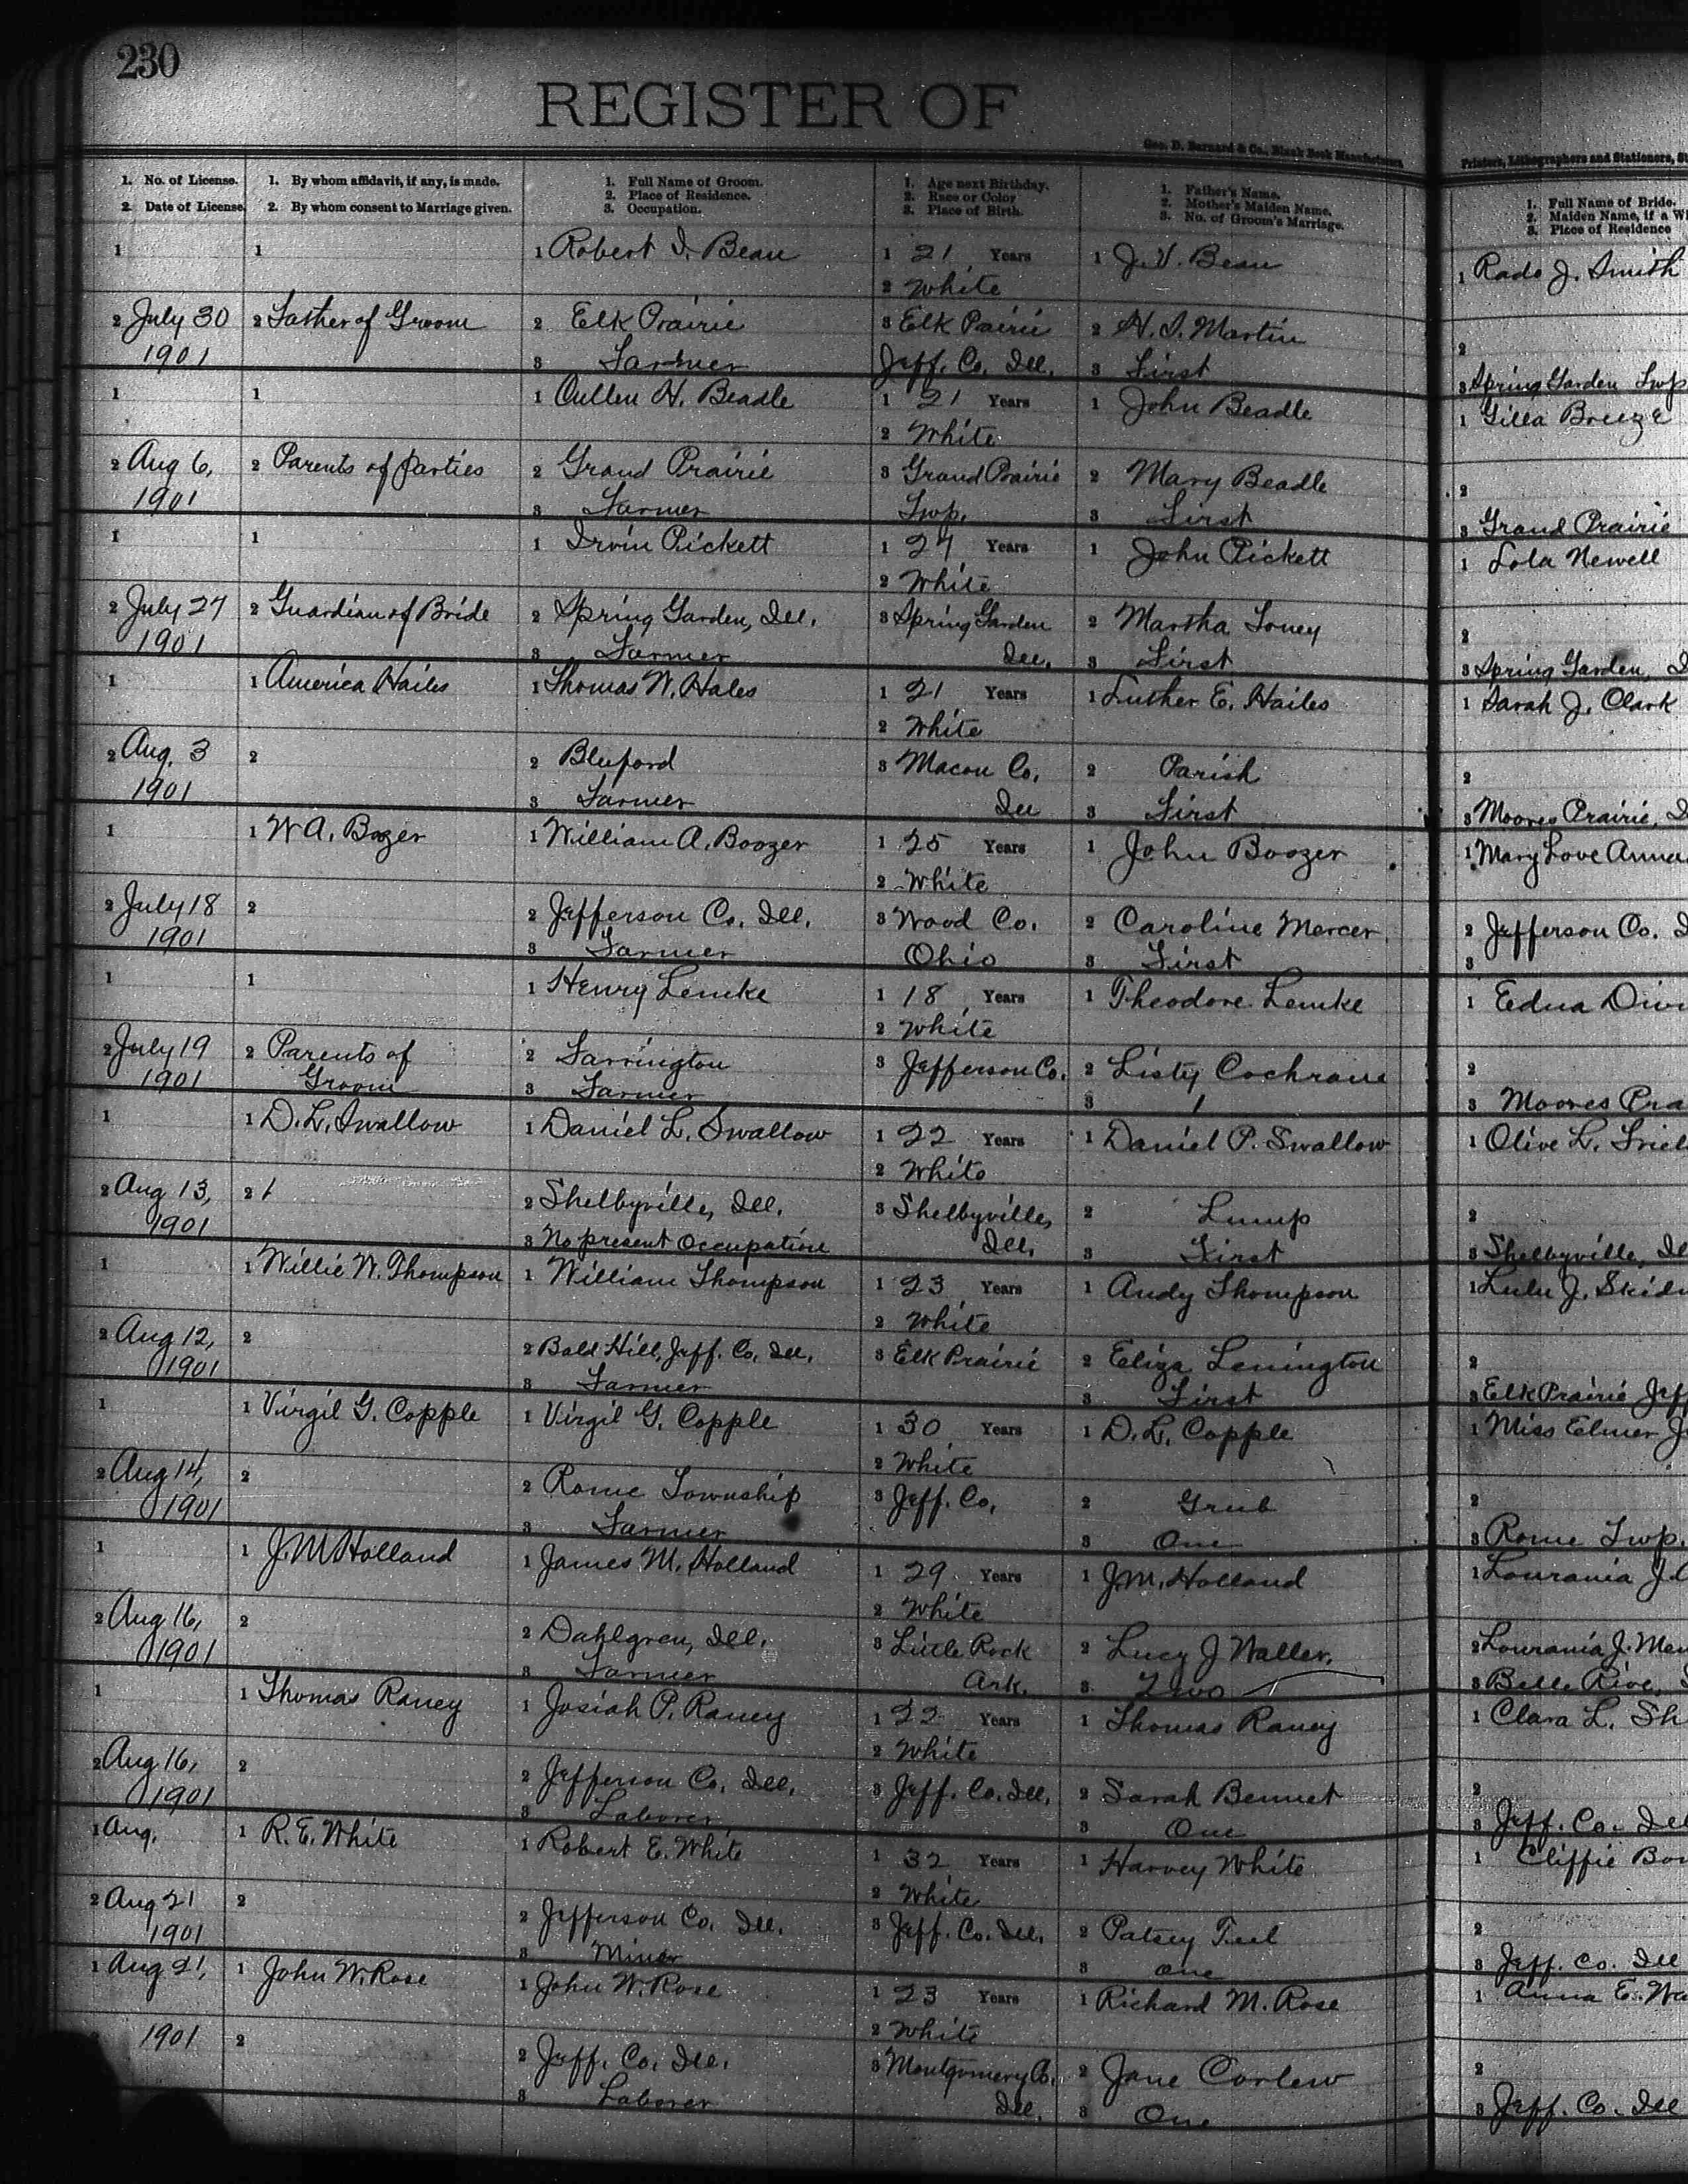 230
REGISTER OF
Geo. D. Barnard & Co., Blank Book Manufacturers,
Printers, Lithographers and Stationers, St
1. No. of License.
2. Date of License.
1. By whom affidavit, if any, is made.
2. By whom consent to Marriage given.
1. Full Name of Groom.
2. Place of Residence.
3. Occupation.
1. Age next Birthday.
2. Race or Color
3. Place of Birth.
1. Father's Name.
2. Mother's Maiden Name.
3. No. of Groom's Marriage.
1. Full Name of Bride.
2. Maiden Name, if a Wi
3. Place of Residence
1
2 July 30
1901
1
2 Father of Groom
1 Robert I. Bean
2 Elk Prairie
3 Farmer
1 21 Years
2 White
3 Elk Pairie
Jeff. Co. Ill.
1 J. V. Bean
2 H. I. Martin
3 First
1 Rado J. Smith
2
3 Spring Garden Twp
1
2 Aug 6,
1901
1
2 Parents of parties
1 Cullen H. Beadle
2 Grand Prairie
3 Farmer
1 21 Years
2 White
3 Grand Prairie
Twp.
1 John Beadle
2 Mary Beadle
3 First
1 Gilla Breeze
2
3 Grand Prairie
1
2 July 27
1901
1
2 Guardian of Bride
1 Irvin Pickett
2 Spring Garden, Ill.
3 Farmer
1 24 Years
2 White
3 Spring Garden
Ill.
1 John Pickett
2 Martha Toney
3 First
1 Lola Newell
2
3 Spring Garden, I
1
2 Aug. 3
1901
1 America Hailes
2
1 Thomas W. Hales
2 Bluford
3 Farmer
1 21 Years
2 White
3 Macon Co.
Ill
1 Luther E. Hailes
2 Parish
3 First
1 Sarah J. Clark
2
3 Moores Prairie, I
1
2 July 18
1901
1 W A. Bozer
2
1 William A. Boozer
2 Jefferson Co. Ill.
3 Farmer
1 25 Years
2 White
3 Wood Co.
Ohio
1 John Boozer
2 Caroline Mercer
3 First
1 Mary Love Anna
2 Jefferson Co. I
3
1
2 July 19
1901
1
2 Parents of
Groom
1 Henry Lemke
2 Farrington
3 Farmer
1 18 Years
2 White
3 Jefferson Co.
1 Theodore Lemke
2 Listy Cochrane
3 1
1 Edna Divi
2
3 Moores Pra
1
2 Aug 13,
1901
1 D. L. Swallow
2 1
1 Daniel L. Swallow
2 Shelbyville, Ill.
3 No present Occupation
1 22 Years
2 White
3 Shelbyville,
Ill.
1 Daniel P. Swallow
2 Lump
3 First
1 Olive L. Friel
2
3 Shelbyville, Il
1
2 Aug 12,
1901
1 Willie W. Thompson
2
1 William Thompson
2 Bald Hill, Jeff. Co. Ill.
3 Farmer
1 23 Years
2 White
3 Elk Prairie
1 Andy Thompson
2 Eliza Lenington
3 First
1 Lulu J. Skidm
2
3 Elk Prairie Jeff
1
2 Aug 14,
1901
1 Virgil G. Copple
2
1 Virgil G. Copple
2 Rome Township
3 Farmer
1 30 Years
2 White
3 Jeff. Co.
1 D. L. Copple
2 Grub
3 One
1 Miss Elmer J
2
3 Rome Twp.
1
2 Aug 16,
1901
1 J. M Holland
2
1 James M. Holland
2 Dahlgren, Ill.
3 Farmer
1 29 Years
2 White
3 Little Rock
Ark.
1 J. M. Holland
2 Lucy J Waller.
3 Two
1 Lourania J. C
2 Lourania J. Man
3 Belle Rive, I
1
2 Aug 16,
1901
1 Thomas Raney
2
1 Josiah P. Raney
2 Jefferson Co. Ill.
3 Laborer
1 22 Years
2 White
3 Jeff. Co. Ill.
1 Thomas Raney
2 Sarah Bennet
3 One
1 Clara L. Sh
2
3 Jeff. Co. Ill
1 Aug.
2 Aug 21
1901
1 R. E. White
2
1 Robert E. White
2 Jefferson Co. Ill.
3 Miner
1 32 Years
2 White
3 Jeff. Co. Ill.
1 Harvey White
2 Patsey Teel
3 One
1 Cliffie Bon
2
3 Jeff. Co. Ill
1 Aug 21,
1901
1 John W. Rose
2
1 John W. Rose
2 Jeff. Co. Ill.
3 Laborer
1 23 Years
2 White
3 Montgomery Co.
Ill.
1 Richard M. Rose
2 Jane Corlew
3 One
1 Anna E. Wa
2
3 Jeff. Co. Ill